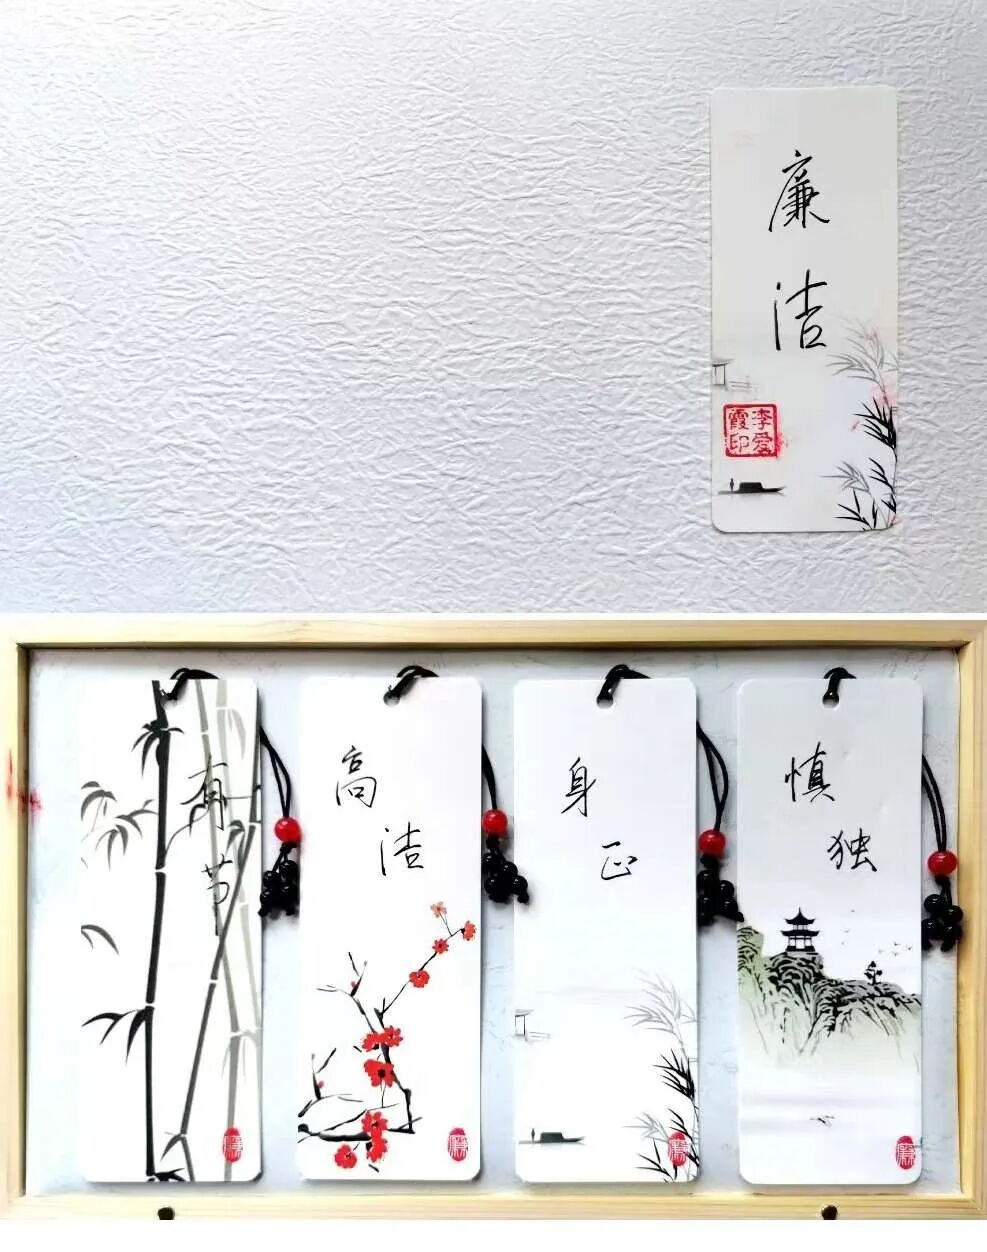 廉洁
李爱霞印
有节
高洁
身正
慎独